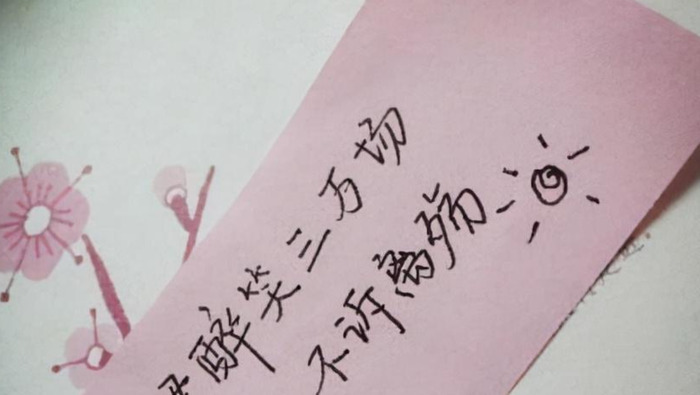 醉笑三万场
不诉离殇